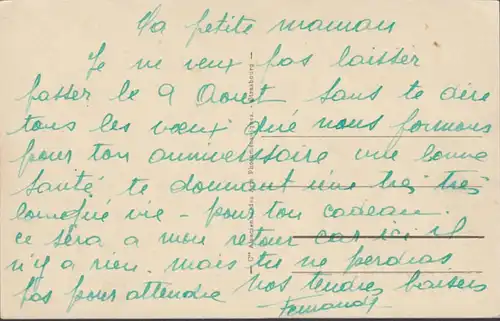 La petite maman
Je ne veux pas laisser
passer le 9 Aout sans te dire
tous les vœux que nous formons
pour ton anniversaire une bonne
santé te donnant une très très
longue vie - pour ton cadeau
ce sera a mon retour car ici il
n'y a rien. mais tu ne perdras
pas pour attendre nos tendres baisers
Fernande